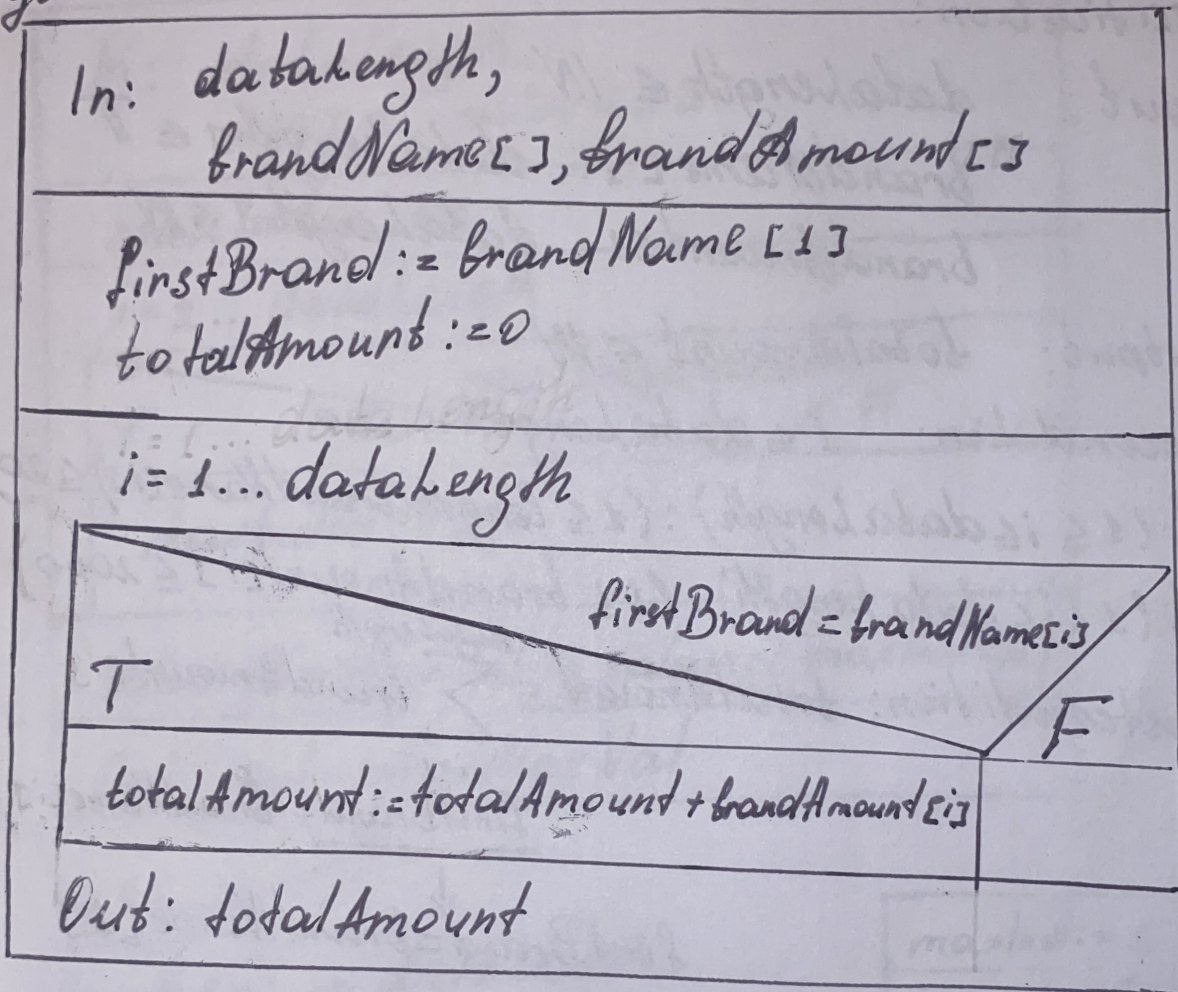 In: dataLength,
brandName[], brandAmount[]
firstBrand := brandName[1]
totalAmount := 0
i = 1... dataLength
firstBrand = brandName[i]
T
F
totalAmount := totalAmount + brandAmount[i]
Out: totalAmount